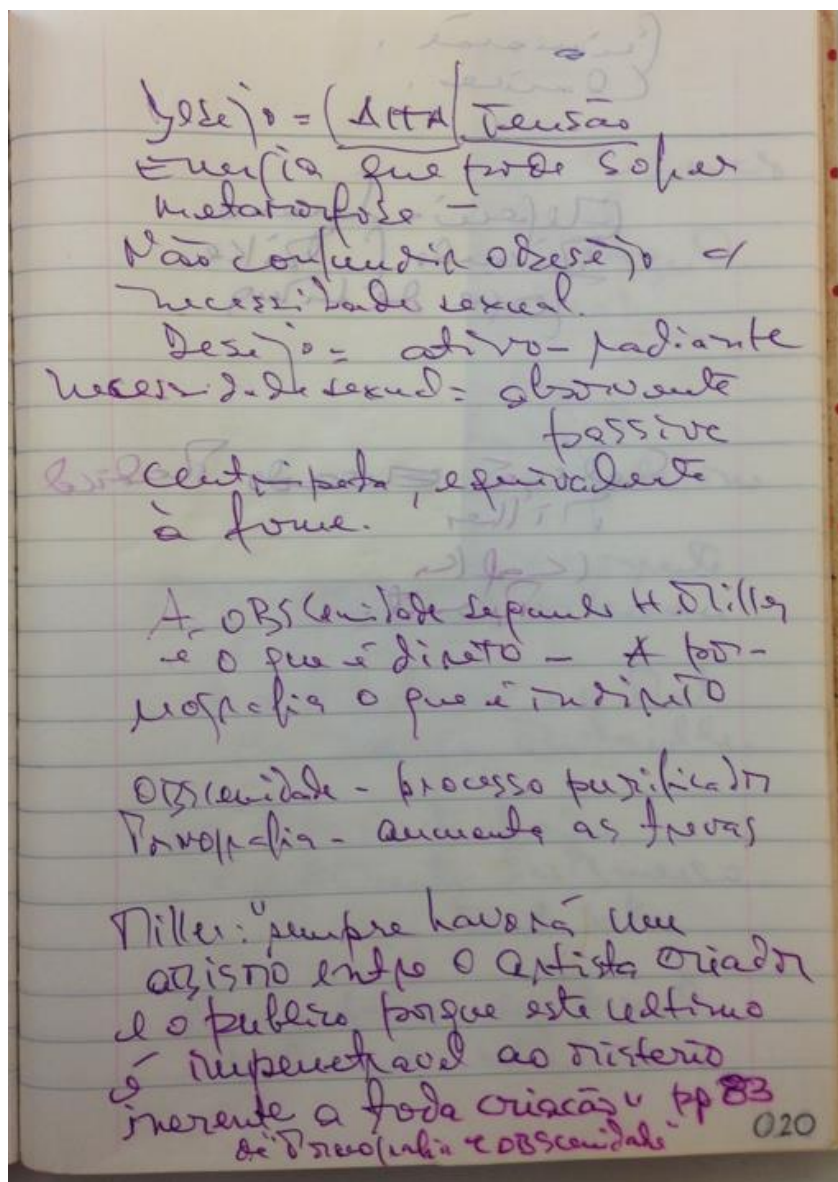 Desejo = (ALTA) Tensão
Energia que pode sofrer
metamorfose -
Não confundir o desejo c/
necessidade sexual.
Desejo = ativo - radiante
necessidade sexual = absorvente
passiva
centripeta, equivalente
à fome.
A OBScenidade segundo H. Miller
é o que é direto - A por-
nografia o que é indireto
OBScenidade - processo purificador
Pornografia - aumenta as trevas
Miller: "sempre haverá um
abismo entre o artista criador
e o publico porque este ultimo
é impenetravel ao misterio
inerente a toda criacão" pp 83
de "Pornografia e OBScenidade"
020